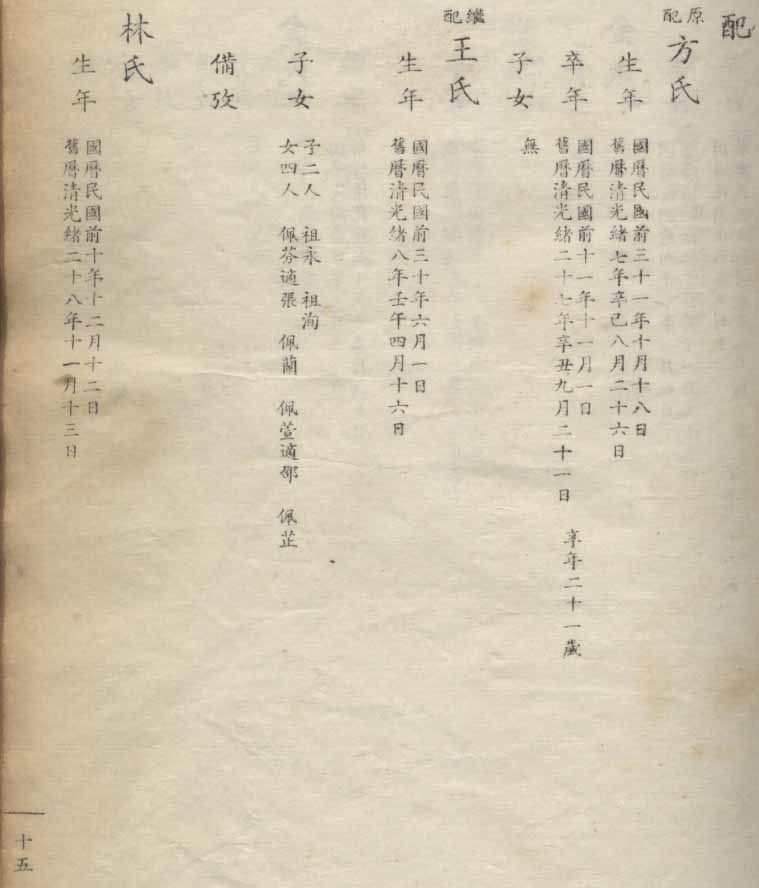 配
原配 方氏
生年 國曆民國前三十一年十月十八日
舊曆清光緒七年辛巳八月二十六日
卒年 國曆民國前十一年十一月一日
舊曆清光緒二十七年辛丑九月二十一日 享年二十一歲
子女 無
繼配 王氏
生年 國曆民國前三十年六月一日
舊曆清光緒八年壬午四月十六日
子女 子二人 祖永 祖洵
女四人 佩芬適張 佩蘭 佩萱適鄒 佩芷
備攷
林氏
生年 國曆民國前十年十二月十二日
舊曆清光緒二十八年十一月十三日
十五